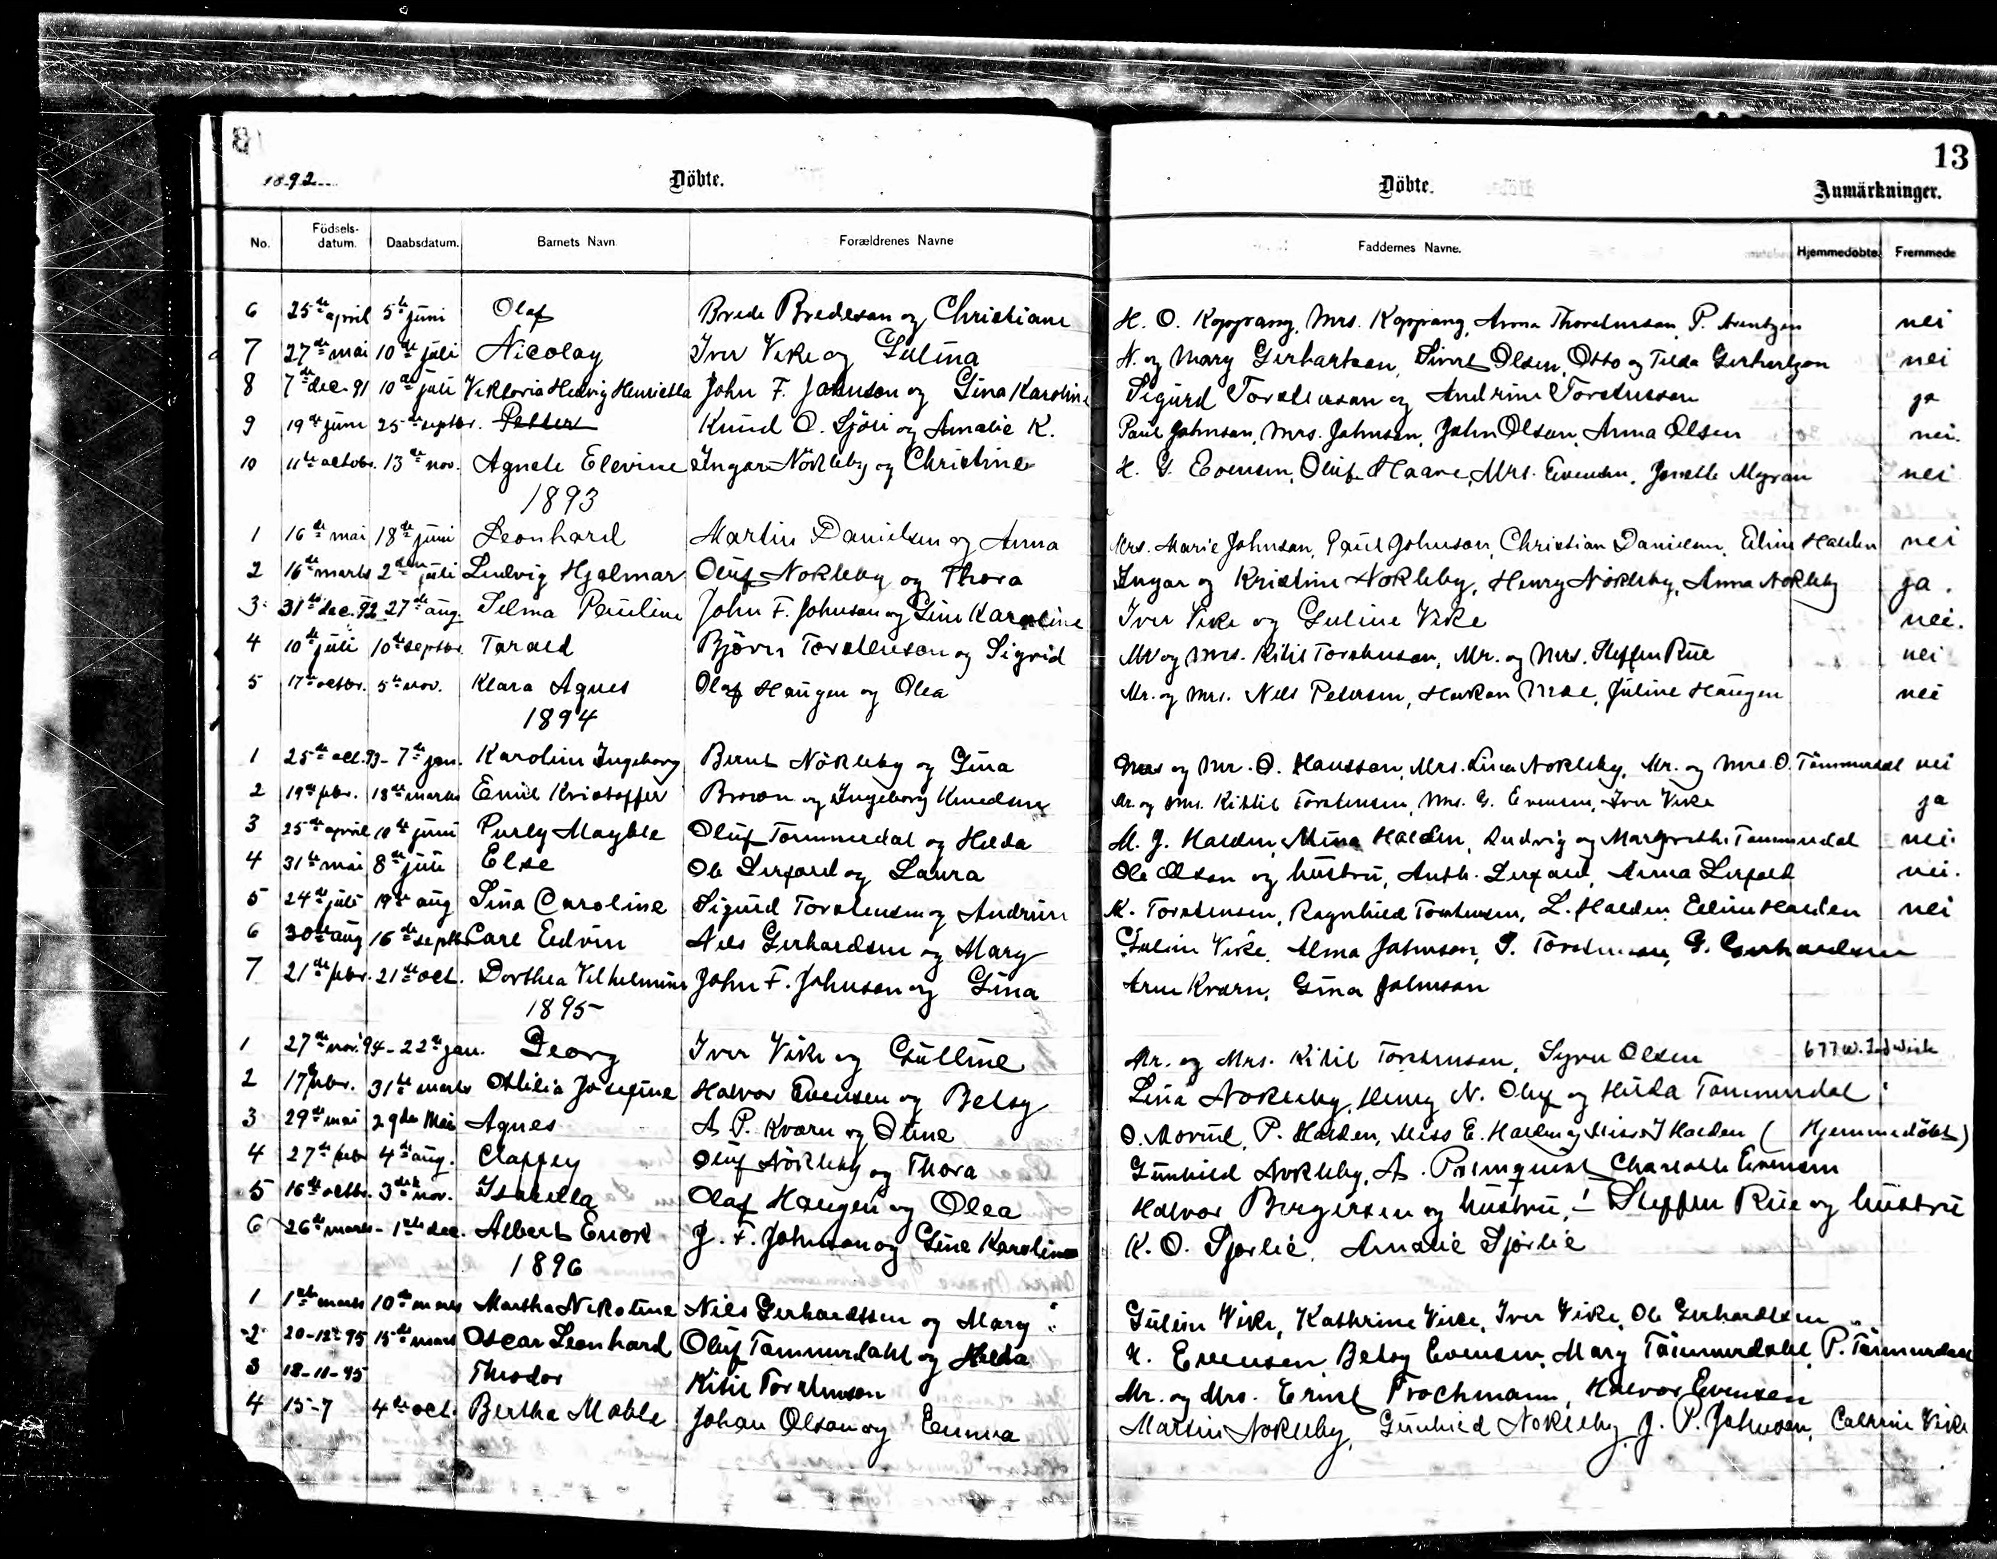 13
1892
Döbte.
Döbte.
Anmärkninger.
No. Födsels-datum. Daabsdatum. Barnets Navn. Forældrenes Navne Faddernes Navne. Hjemmedöbte. Fremmede
6 25de april 5te juni Olaf Brede Bredesan og Christiane H. O. Koppang, Mrs. Koppang, Anna Thorstensen, P. nei
7 27de mai 10de juli Nicolay Iver Vike og Gulina N. og Mary Gerhartsen, Olsen, Otto og Tilda nei
8 7de dec. 91 10de juli Viktoria Hedvig Henrietta John F. Johnson og Gina Karoline Sigurd Torstensen og Andrine Torstensen ja
9 19de juni 25de septbr. Petter Knud O. Sjöli og Amalie K. Paul Johnson, Mrs. Johnson, John Olson, Anna Olsen nei.
10 11te octobr. 13de nov. Agnete Elevine Ingar Nökleby og Christine H. G. Evensen, Oluf Haave, Mrs. Evensen, nei
1893
1 16de mai 18de juni Leonhard Martin Danielsen og Anna Mrs. Marie Johnson, Paul Johnson, Christian Danielsen, Eline Halden nei
2 16de marts 2den juli Ludvig Hjalmar Oluf Nokleby og Thora Ingar og Kristine Nokleby, Henry Nökleby, Anna Nokleby ja.
3 31te dec. 92 27de aug. Selma Pauline John F. Johnson og Gine Karoline Iver Vike og Guline Vike nei.
4 10de juli 10de septbr. Tarald Björn Torstenson og Sigrid Mr og Mrs. Kitil Torstenson, Mr. og Mrs. Steffen Rue nei
5 17de octbr. 5te nov. Klara Agnes Olaf Haugen og Olea Mr. og Mrs. Nels Petersen, Haakon Moe, Juline Haugen nei
1894
1 25de oct. 93- 7de jan. Karoline Ingeborg Bernt Nökleby og Gina Mrs og Mr. O. Hansson, Mrs. Lina Nokleby, Mr. og Mrs. O. Tömmerdal nei
2 19de febr. 18de marts Emil Kristoffer Brown og Ingeborg Knudsen Mr. og Mrs. Kittil Torstensen, Mrs. G. Evensen, Iver Vike ja
3 25de april 10de juni Purly Mayble Oluf Tommerdal og Hilda M. J. Halden, Mina Halden, Ludvig og Margrethe Tommerdal nei.
4 31te mai 8de juli Else Ole Lerfald og Laura Ole Olson og hustru, Anth. Lerfald, Anna Lerfald nei.
5 24de juli 19de aug Lina Caroline Sigurd Torstensen og Andrine K. Torstensen, Ragnhild Torstensen, L. Halden, Eline Halden nei
6 30te aug 16de septbr Carl Edvin Nels Gerhardsen og Mary Guline Vike, Alma Johnson, S. Torstensen, G. Gerhardsen
7 21de febr. 21de oct. Dorthea Vilhelmine John F. Johnson og Gina Arne Kvarn, Gina Johnson
1895
1 27de nov. 94 - 22de jan. Georg Iver Vike og Gulline Mr. og Mrs. Kitil Torstenson, Syver Olsen 677 W. Ind
2 17 febr. 31te marts Othilia Josefine Halvor Evensen og Betsy Lina Nokleby, Henry N. Oluf og Hilda Tommerdal
3 29de mai 29de Mai Agnes A P. Kvarn og Oline O. P. Halden, Miss E. Halden og Miss J Halden (Hjemmedöbt)
4 27de febr 4de aug. Claffey Oluf Nökleby og Thora Gunhild Nokleby, A. Palmquist Charlotte Evensen
5 16de octbr. 3die nov. Isabella Olaf Haugen og Olea Halvor Bergersen og hustru, - Steffen Rue og hustru
6 26de marts - 1ste dec. Albert Enok J. F. Johnson og Gine Karoline K. O. Sjørlie, Amalie Sjørlie
1896
1 1ste marts 10de marts Martha Nikoline Niels Gerhardtsen og Mary Gulin Vike, Kathrine Vike, Iver Vike, Ole Gerhardtsen
2 20-12-95 15de marts Oscar Leonhard Oluf Tommerdahl og Hilda H. Evensen Betsy Evensen, Mary Tömmerdahl, P. Tömmerdahl
3 18-11-95 Theodor Kitil Torstenson Mr. og Mrs. Ernst Trochmann, Halvor Evensen
4 15-7 4de oct. Bertha Mable Johan Olson og Emma Martin Nokleby, Gunhild Nokleby, J. P. Johnson, Cathrine Vike